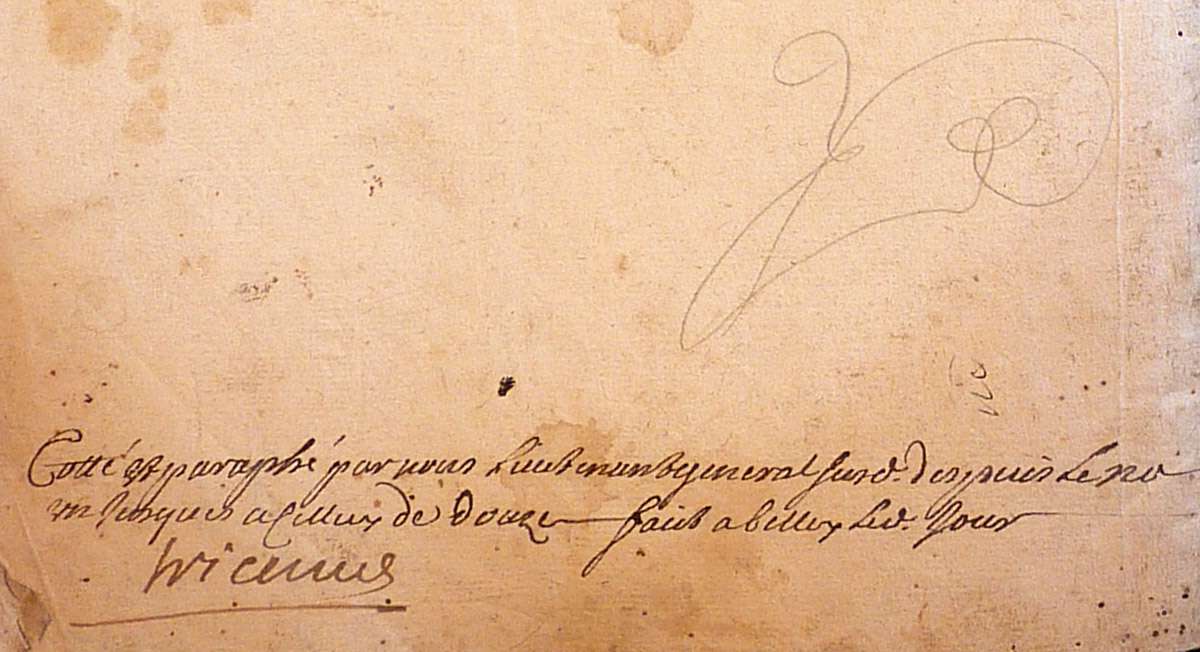 Cotté et paraphé par nous Lieutenant general susd. despuis Le no
un Jusques a Celluy de Douze faict a belley Led. Jour